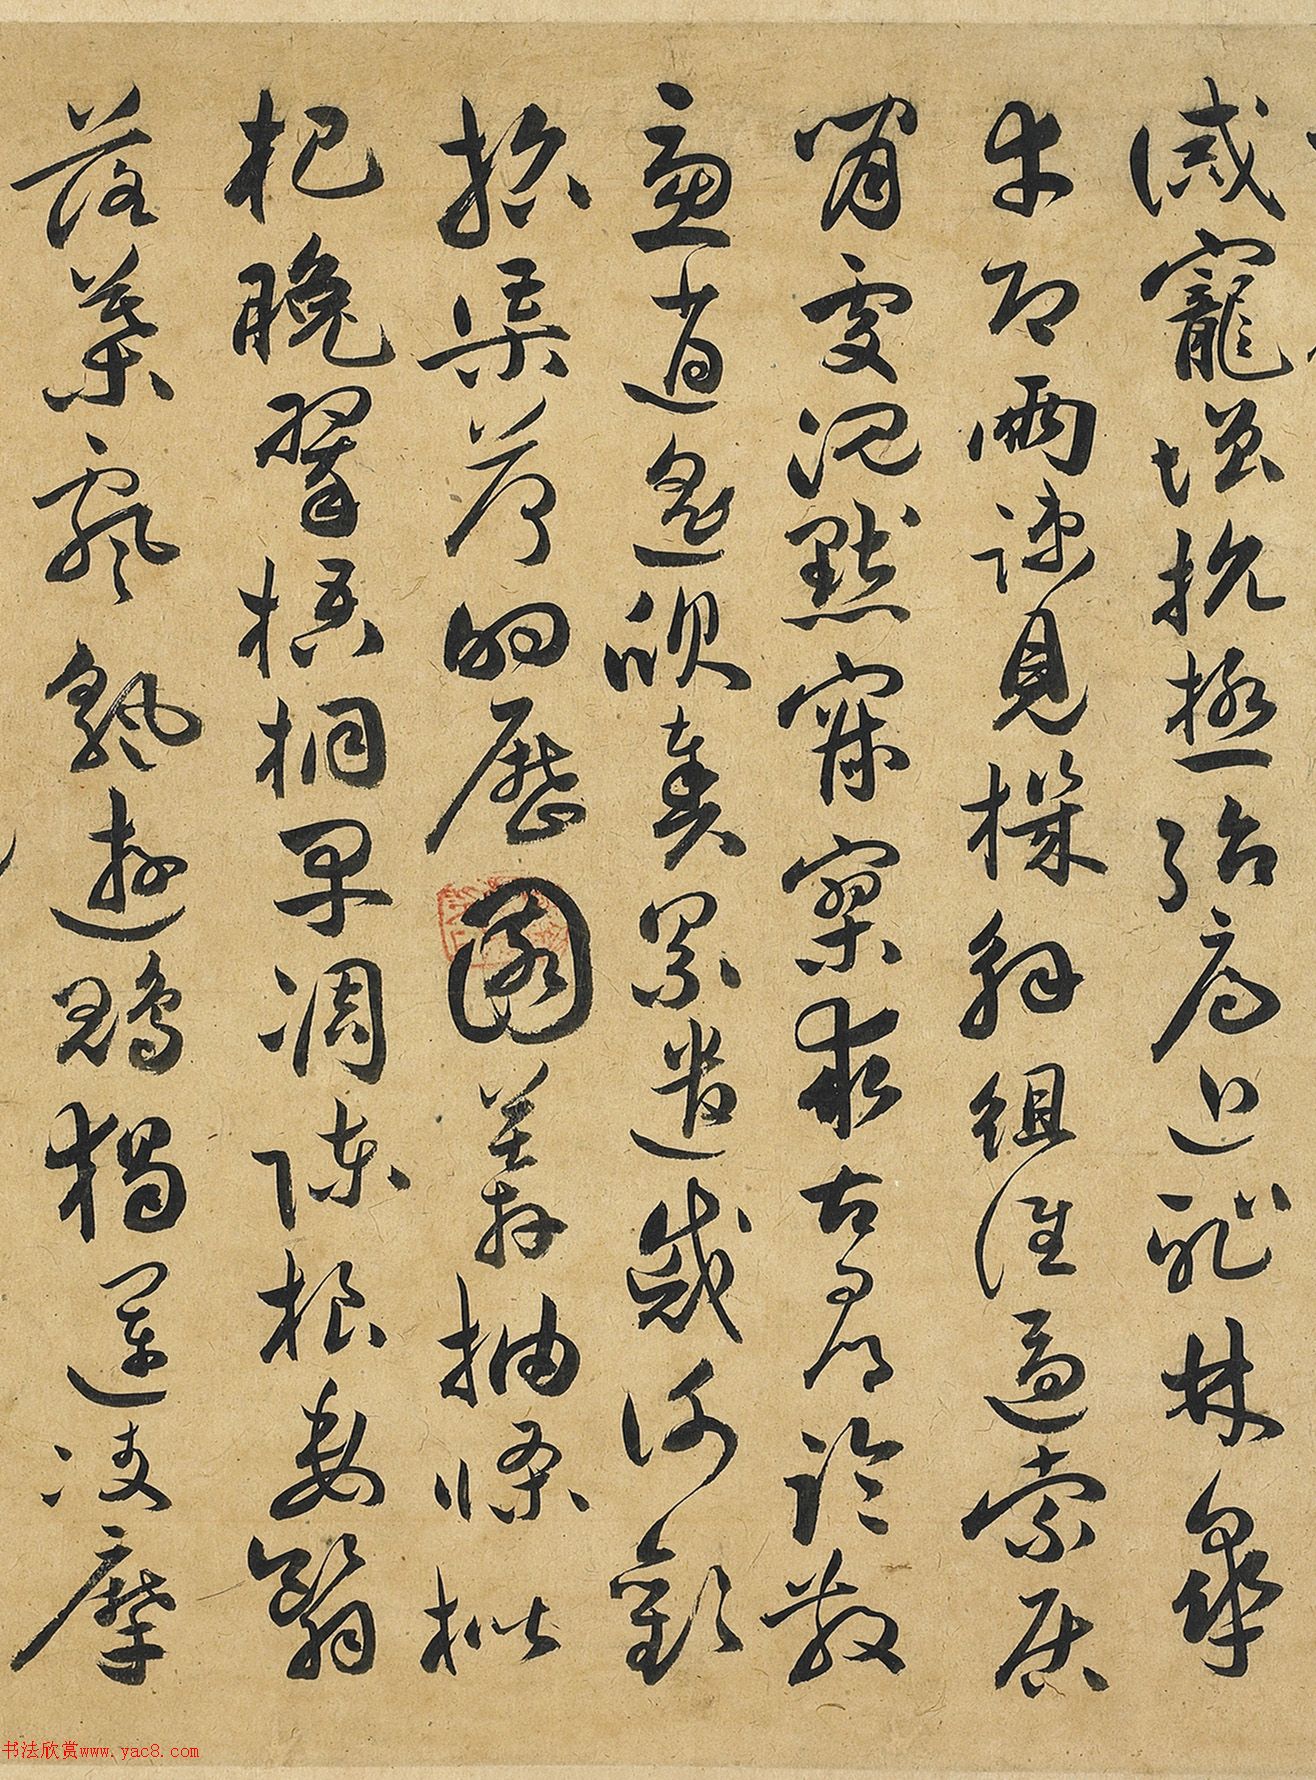 誡寵增抗極殆辱近恥林皋
幸即兩疏見機解組誰逼索居
閑處沉默寂寥求古尋論散
慮逍遙欣奏累遣慼謝歡
招渠荷的歷園莽抽條枇
杷晚翠梧桐早凋陳根委翳
落葉飄颻遊鵾獨運凌摩
书法欣赏www.yac8.com